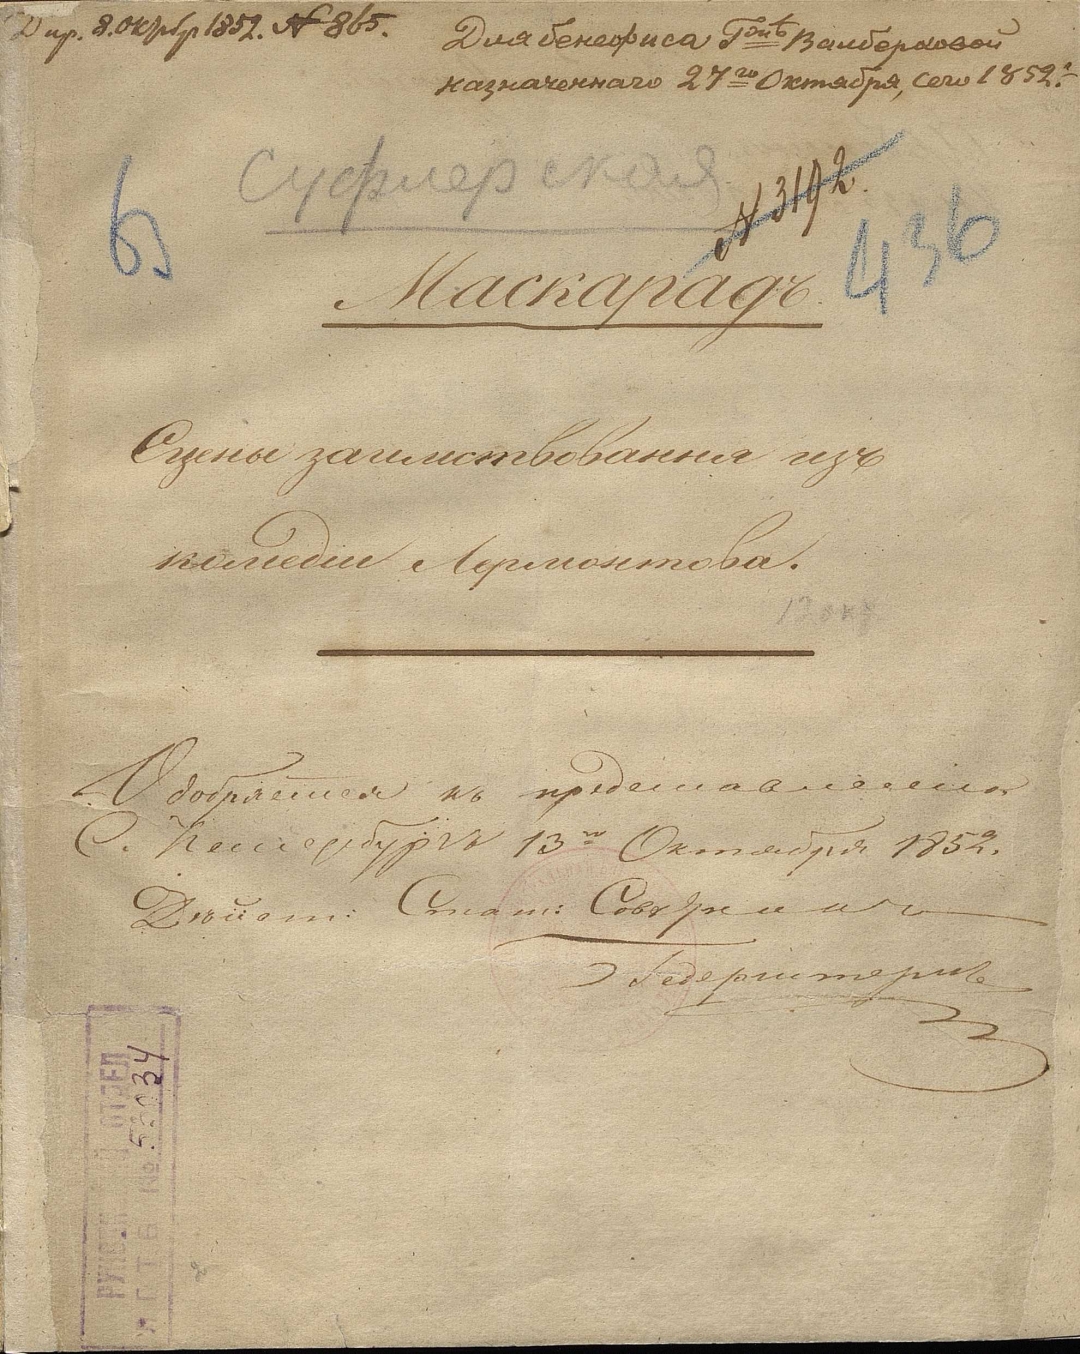 8. Октбр 1852. № 865.
Для бенефиса Г-жѣ Валберховой
назначеннаго 27го Октября, сего 1852 г.
Суфлерская
№ 3192.
63
436
Маскарадъ.
Сцены заимствованныя изъ
комедіи Лермонтова.
12 окт
Одобряется къ представленію
С. Петербургъ 13го Октября 1852.
Дѣйст: Стат: Совѣтникъ
Гедерштернъ
РУКОП ОТДЕЛ
ЛГТБ № 52034